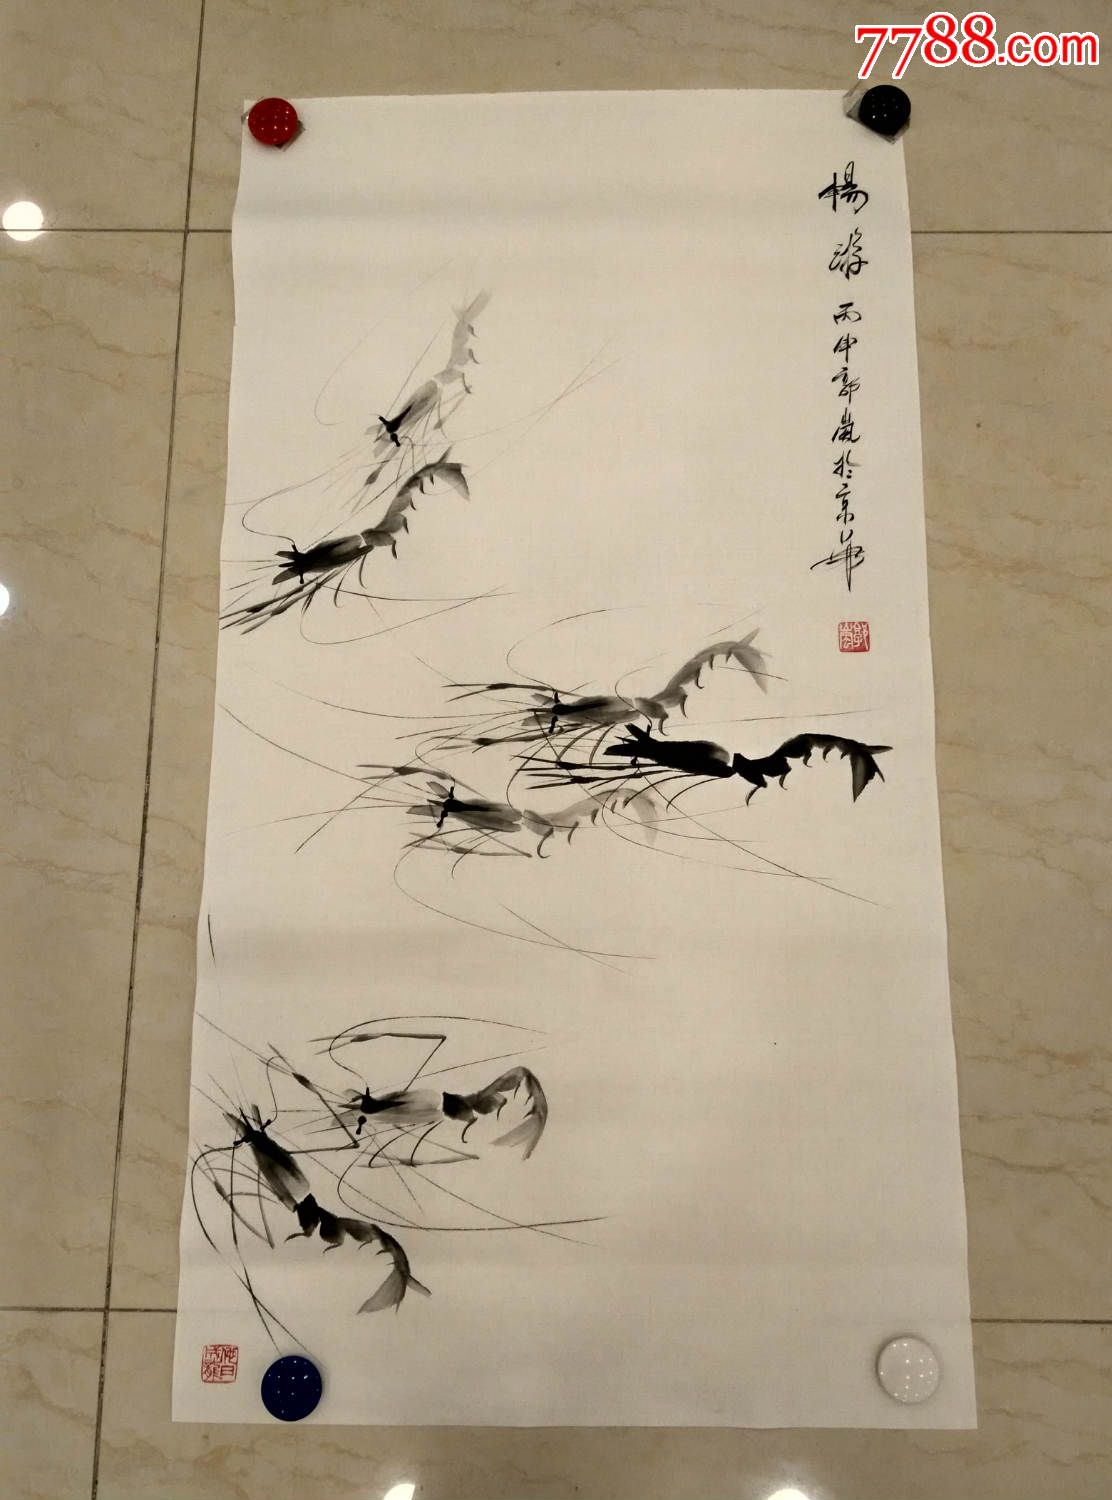 7788.com
楊游丙申郭嵐於京华
郭嵐